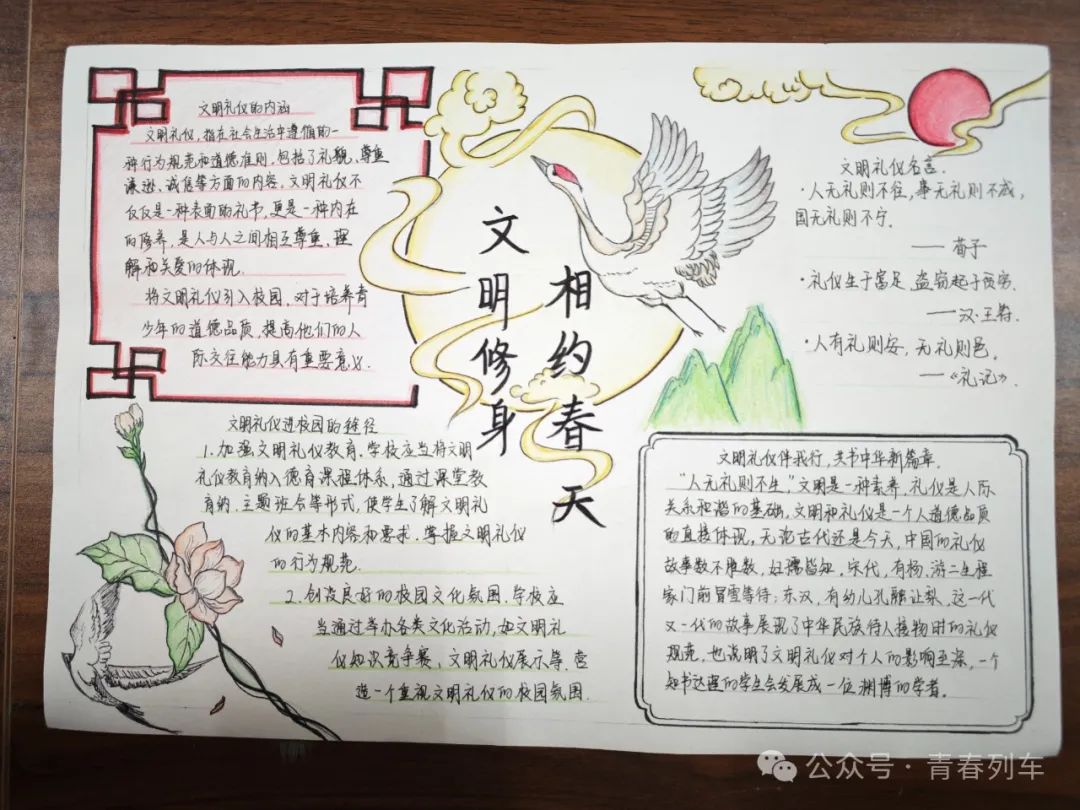 文明礼仪的内涵
文明礼仪,指在社会生活中遵循的一
种行为规范和道德准则,包括了礼貌、尊重
谦逊、诚信等方面的内容,文明礼仪不
仅仅是一种表面的礼节,更是一种内在
的修养,是人与人之间相互尊重、理
解和关爱的体现.
将文明礼仪引入校园,对于培养青
少年的道德品质,提高他们的人
际交往能力具有重要意义.
文明修身
相约春天
文明礼仪名言.
·人无礼则不生,事无礼则不成,
国无礼则不宁.
——荀子
·礼仪生于富足,盗窃起于贫穷.
——汉·王符.
·人有礼则安,无礼则危.
——《礼记》.
文明礼仪进校园的途径
1.加强文明礼仪教育.学校应当将文明
礼仪教育纳入德育课程体系,通过课堂教
育纳、主题班会等形式,使学生了解文明礼
仪的基本内容和要求,掌握文明礼仪
的行为规范.
2.创设良好的校园文化氛围.学校应
当通过举办各类文化活动,如文明礼
仪知识竞争赛、文明礼仪展示等.营
造一个重视文明礼仪的校园氛围.
文明礼仪伴我行,共书中华新篇章.
“人无礼则不生,”文明是一种素养,礼仪是人际
关系和谐的基础.文明和礼仪是一个人道德品质
的直接体现,无论古代还是今天,中国的礼仪
故事数不胜数,妇孺皆知,宋代,有杨、游二生程
家门前冒雪等待;东汉,有幼儿孔融让梨,这一代
又一代的故事展现了中华民族待人接物时的礼仪
规范,也说明了文明礼仪对个人的影响至深,一个
知书达理的学生会发展成一位渊博的学者.
公众号·青春列车